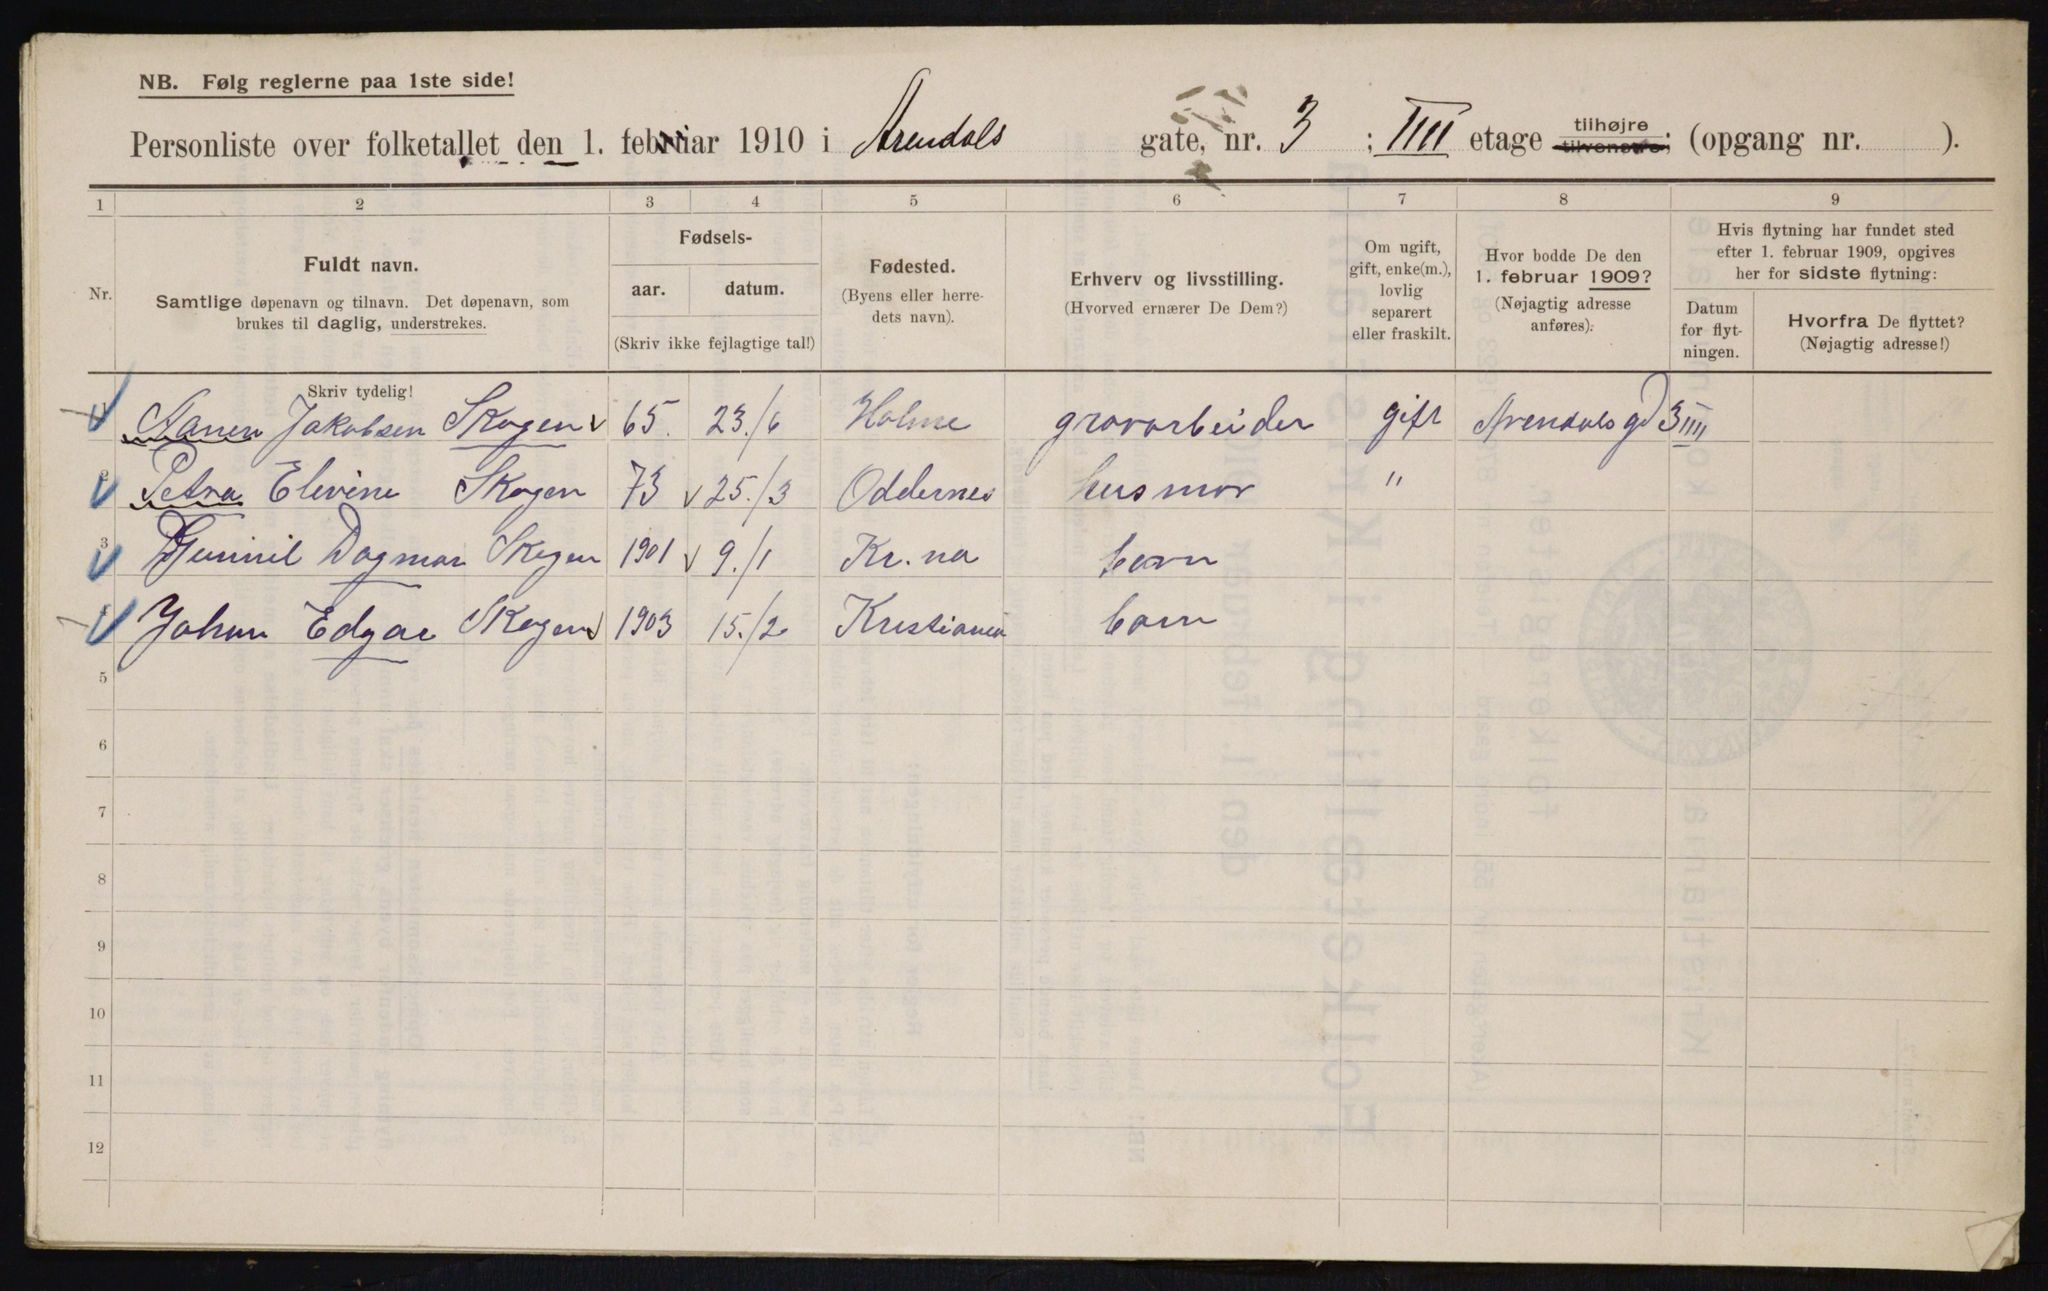 NB. Følg reglerne paa 1ste side!
Personliste over folketallet den 1. februar 1910 i Arendals gate, nr. 3 ; IIII etage tilhøjre tilvenstre; (opgang nr. ).
1 2 3 4 5 6 7 8 9
Nr.
Fuldt navn.
Samtlige døpenavn og tilnavn. Det døpenavn, som
brukes til daglig, understrekes.
Fødsels-
aar. datum.
(Skriv ikke fejlagtige tal!)
Fødested.
(Byens eller herre-
dets navn).
Erhverv og livsstilling.
(Hvorved ernærer De Dem?)
Om ugift,
gift, enke(m.),
lovlig
separert
eller fraskilt.
Hvor bodde De den
1. februar 1909?
(Nøjagtig adresse
anføres).
Hvis flytning har fundet sted
efter 1. februar 1909, opgives
her for sidste flytning:
Datum
for flyt-
ningen.
Hvorfra De flyttet?
(Nøjagtig adresse!)
Skriv tydelig!
1 Aanen Jakobsen Skogen 65. 23./6 Holme gravarbeider gift Arendals gd 3 IIII
2 Petra Elevine Skogen 73 25./3 Oddernes husmor "
3 Gunnil Dagmar Skogen 1901 9./1 Kr.na barn
4 Johan Edgar Skogen 1903 15./2 Kristiania barn
5
6
7
8
9
10
11
12